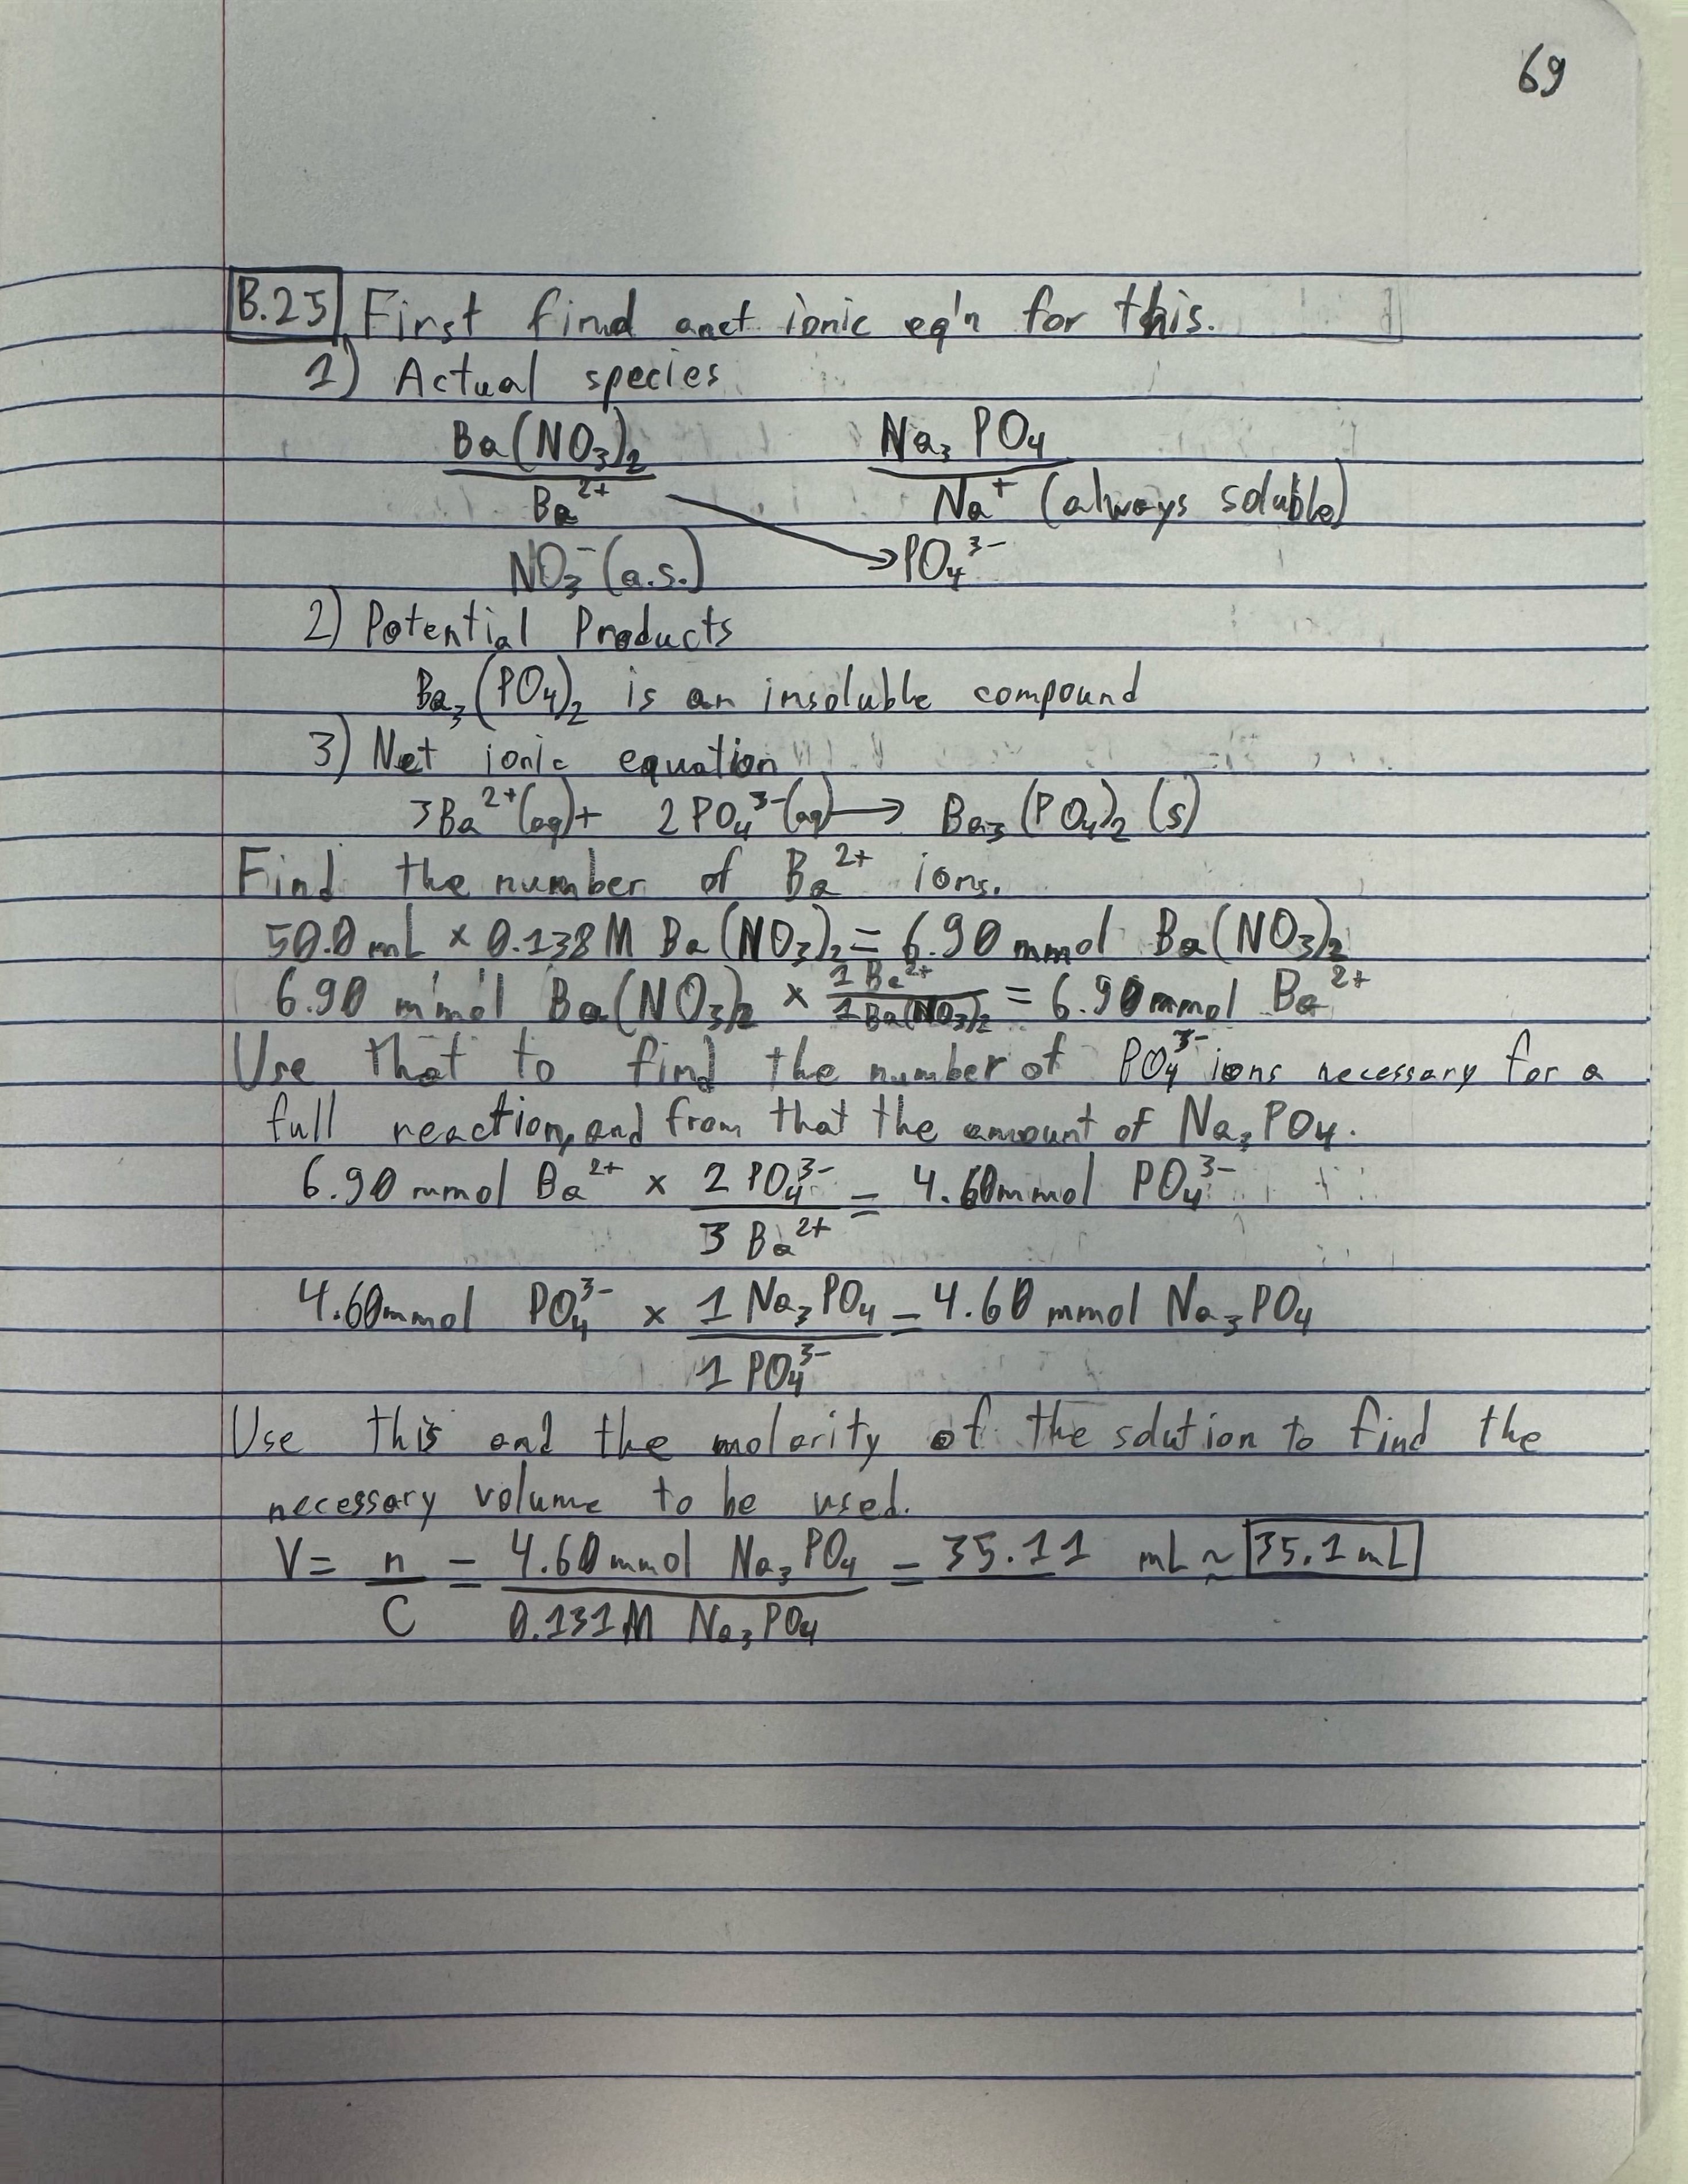 69
B.25 First find a net ionic eq'n for this.
1) Actual species
Ba(NO₃)₂ Na₃PO₄
Ba²⁺ Na⁺ (always soluble)
NO₃⁻ (a.s.) → PO₄³⁻
2) Potential Products
Ba₃(PO₄)₂ is an insoluble compound
3) Net ionic equation
3Ba²⁺(aq) + 2PO₄³⁻(aq) → Ba₃(PO₄)₂ (s)
Find the number of Ba²⁺ ions.
50.0 mL × 0.138 M Ba(NO₃)₂ = 6.90 mmol Ba(NO₃)₂
6.90 mmol Ba(NO₃)₂ × 1 Ba²⁺ / 1 Ba(NO₃)₂ = 6.90 mmol Ba²⁺
Use that to find the number of PO₄³⁻ ions necessary for a
full reaction, and from that the amount of Na₃PO₄.
6.90 mmol Ba²⁺ × 2 PO₄³⁻ / 3 Ba²⁺ = 4.60 mmol PO₄³⁻
4.60 mmol PO₄³⁻ × 1 Na₃PO₄ / 1 PO₄³⁻ = 4.60 mmol Na₃PO₄
Use this and the molarity of the solution to find the
necessary volume to be used.
V = n / C = 4.60 mmol Na₃PO₄ / 0.131 M Na₃PO₄ = 35.11 mL ≈ 35.1 mL